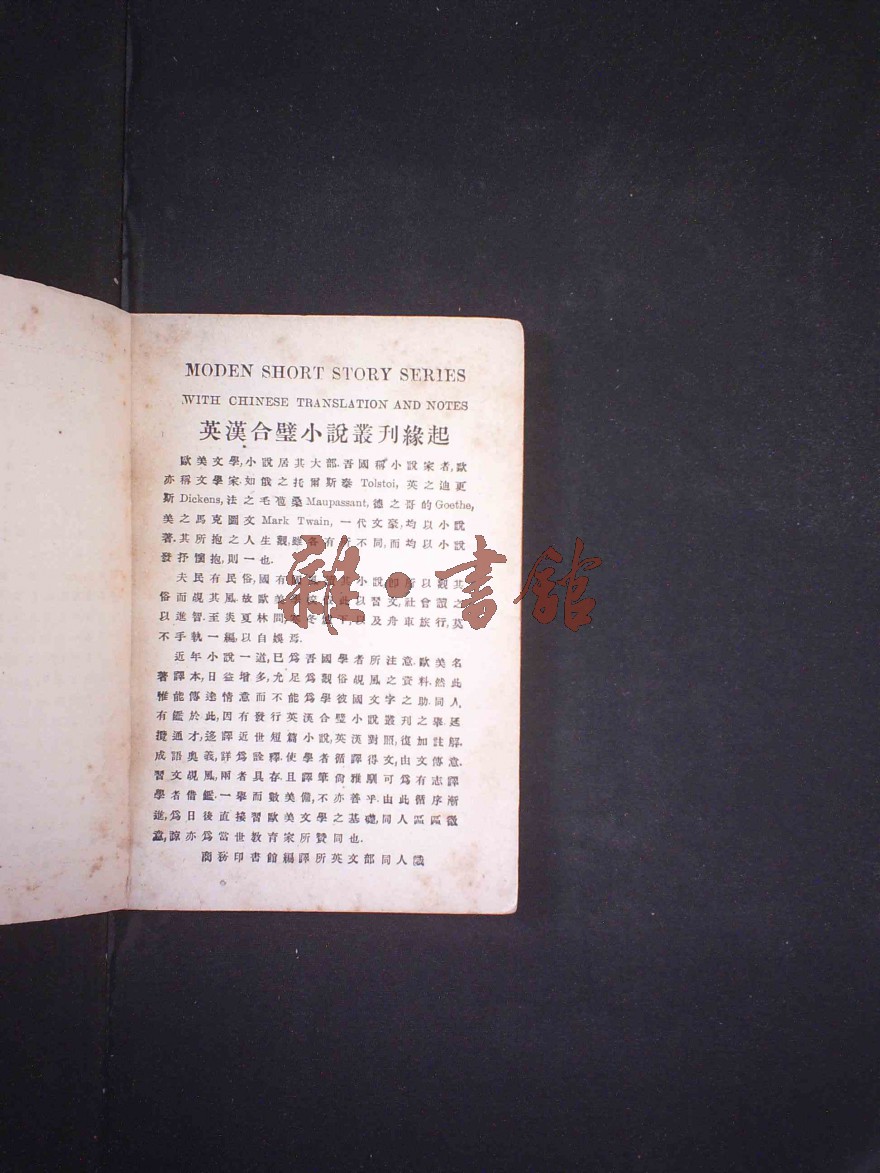 MODEN SHORT STORY SERIES
WITH CHINESE TRANSLATION AND NOTES
英漢合璧小說叢刊緣起
歐美文學,小說居其大部.吾國稱小說家者,歐
亦稱文學家.如俄之托爾斯泰 Tolstoi, 英之迪更
斯 Dickens, 法之毛葛桑 Maupassant, 德之哥的 Goethe,
美之馬克圖文 Mark Twain, 一代文豪,均以小說
著.其所抱之人生觀,雖各有不同,而均以小說
發抒懷抱,則一也.
夫民有民俗,國有其小說卽所以觀其
俗而覘其風.故歐美以習文,社會讀之
以進智.至炎夏林間,以及舟車旅行,莫
不手執一編,以自娛焉.
近年小說一道,已爲吾國學者所注意.歐美名
著譯本,日益增多,尤足爲觀俗覘風之資料.然此
惟能傳達情意而不能爲學彼國文字之助.同人
有鑑於此,因有發行英漢合璧小說叢刊之舉.延
攬通才,迻譯近世短篇小說,英漢對照,復加註解.
成語奧義,詳爲詮釋.使學者循譯得文,由文傳意.
習文覘風,兩者具存.且譯筆尙雅馴可爲有志譯
學者借鑑.一舉而數美備,不亦善乎.由此循序漸
進,爲日後直接習歐美文學之基礎,同人區區微
意,諒亦爲當世教育家所贊同也.
商務印書館編譯所英文部同人識
雜·書館